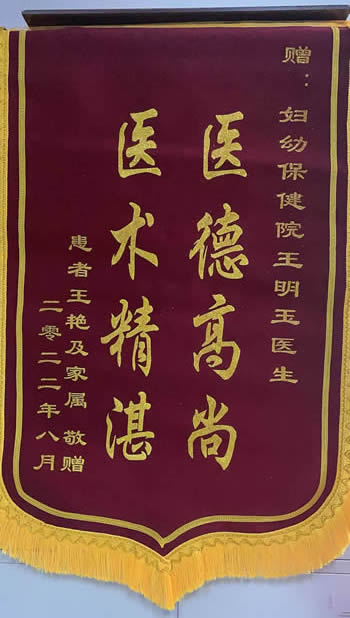 赠：妇幼保健院王明玉医生
医德高尚
医术精湛
患者王艳及家属 敬赠
二零二二年八月